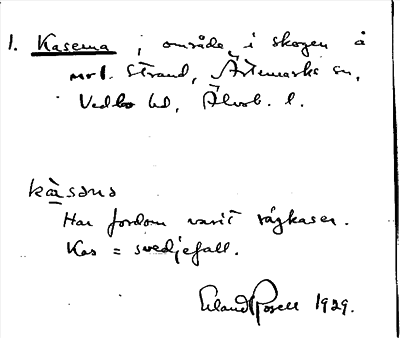 1. Kaserna, område i skogen å
mrl. Strand, Ärtemarks sn,
Vedbo hd, Älvsb. l.
kàsənə
Har fordom varit rågkaser.
Kas = svedjefall.
Erland Rosell 1929.